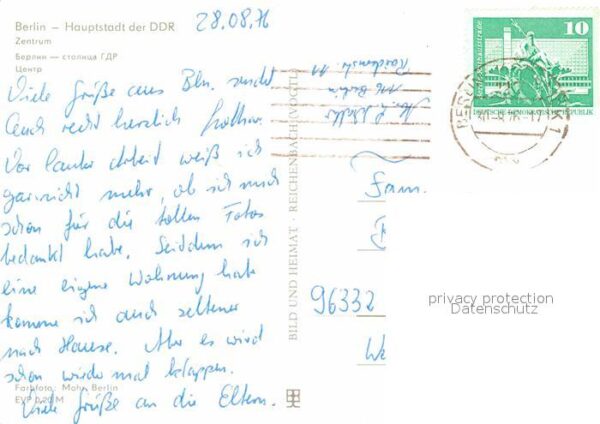 Berlin – Hauptstadt der DDR
Zentrum
Берлин — столица ГДР
Центр
28.08.76
Viele Grüße aus Bln. sendet
Euch recht herzlich
Vor lauter Arbeit weiß ich
garnicht mehr, ob ich mich
schon für die tollen Fotos
bedankt habe. Seitdem ich
eine eigene Wohnung habe
komme ich auch seltener
nach Hause. Aber es wird
schon wieder mal klappen.
Viele Grüße an die Eltern.
Farbfoto: Mohr, Berlin
EVP 0,20 M
BILD UND HEIMAT · REICHENBACH (VOGTL)
116 Berlin
10
DEUTSCHE DEMOKRATISCHE REPUBLIK
BERLIN
Fam.
96332
privacy protection
Datenschutz